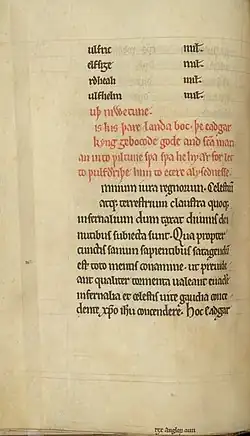 ulfric mił.
elfsige mił.
mił.
ulfhelm mił.
is his þare landa boc. þe eadgar
kyng gebocode gode and sc̄a mari
an into piltune spa spa he hyt for
to pulfðriþe him to ecere alysednesse.
mnium iura regnorum. celestiū
atq; terrestrium claustra quoq;
infernalium dum taxat diuinis dei
nutibus subiecta sunt. Qua propter
cunctis sanum sapientibus satagendū
est toto mentis conamine. ut preuide
ant qualiter tormenta ualeant euade
infernalia et celestis uite gaudia conce
dente xp̄o ih̄u conscendere. Hoc eadgar
rex anglon